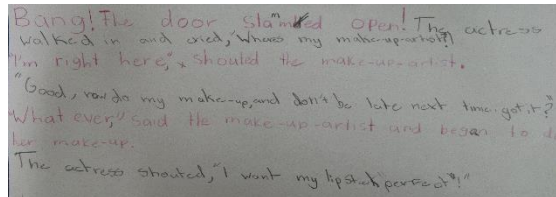 Bang! The door slammed open! The actress
walked in and cried, "Where's my make-up-artist?
"I'm right here," shouted the make-up-artist.
"Good, now do my make-up, and don't be late next time. got it?"
"What ever," said the make-up-artist and began to d
her make-up.
The actress shouted, "I want my lipstick perfect"!"